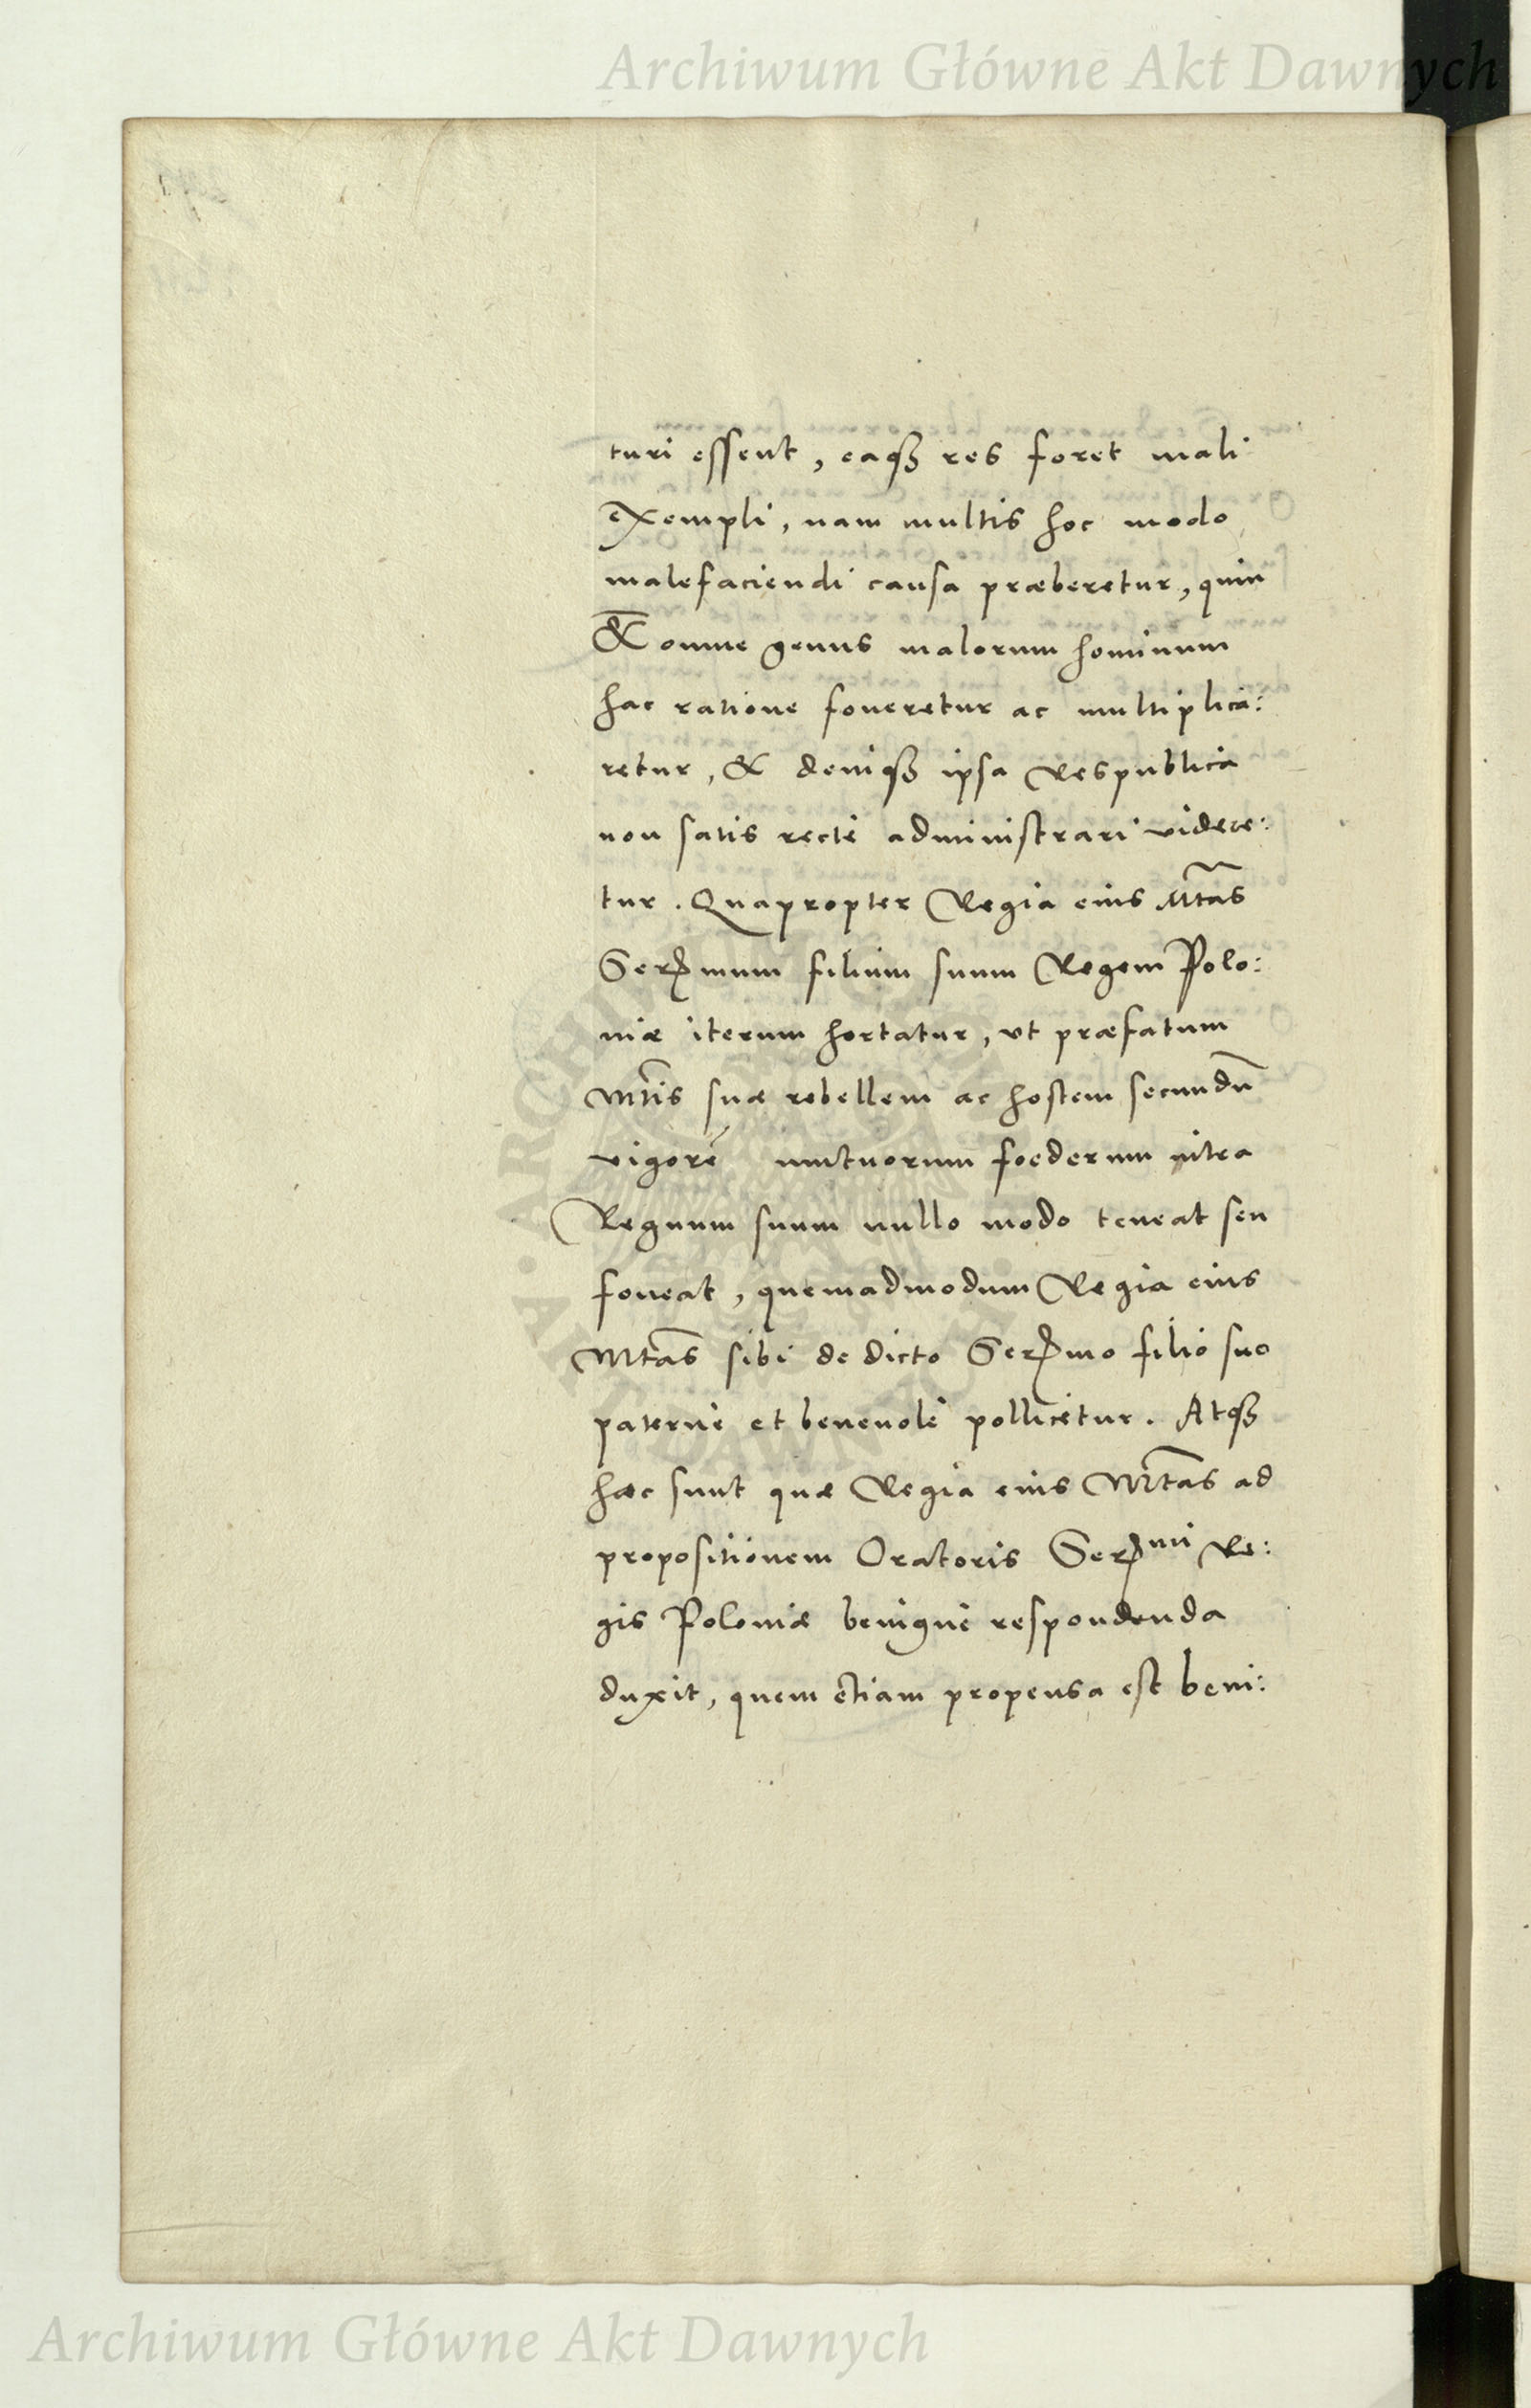 Archiwum Główne Akt Dawnych
turi essent, eaqȝ res foret mali
exempli, nam multis hoc modo
malefaciendi causa præberetur, quin
& omne genus malorum hominum
hac ratione foueretur ac multiplica:
retur, & deniqȝ ipsa Respublica
non satis recte administrari videre:
tur. Quapropter Regia eius Mtas
Serꝰmum filium suum Regem Polo:
niæ iterum hortatur, vt præfatum
Mtis suæ rebellem ac hostem secundū
vigorē mutuorum foederum intra
Regnum suum nullo modo teneat seu
foueat, quemadmodum Regia eius
Mtas sibi de dicto Serꝰmo filio suo
paternè et beneuolè pollicetur. Atqȝ
hæc sunt quæ Regia eius Mtas ad
propositionem Oratoris Serꝰmi Re:
gis Poloniæ benignè respondenda
duxit, quem etiam propensa est beni:
Archiwum Główne Akt Dawnych